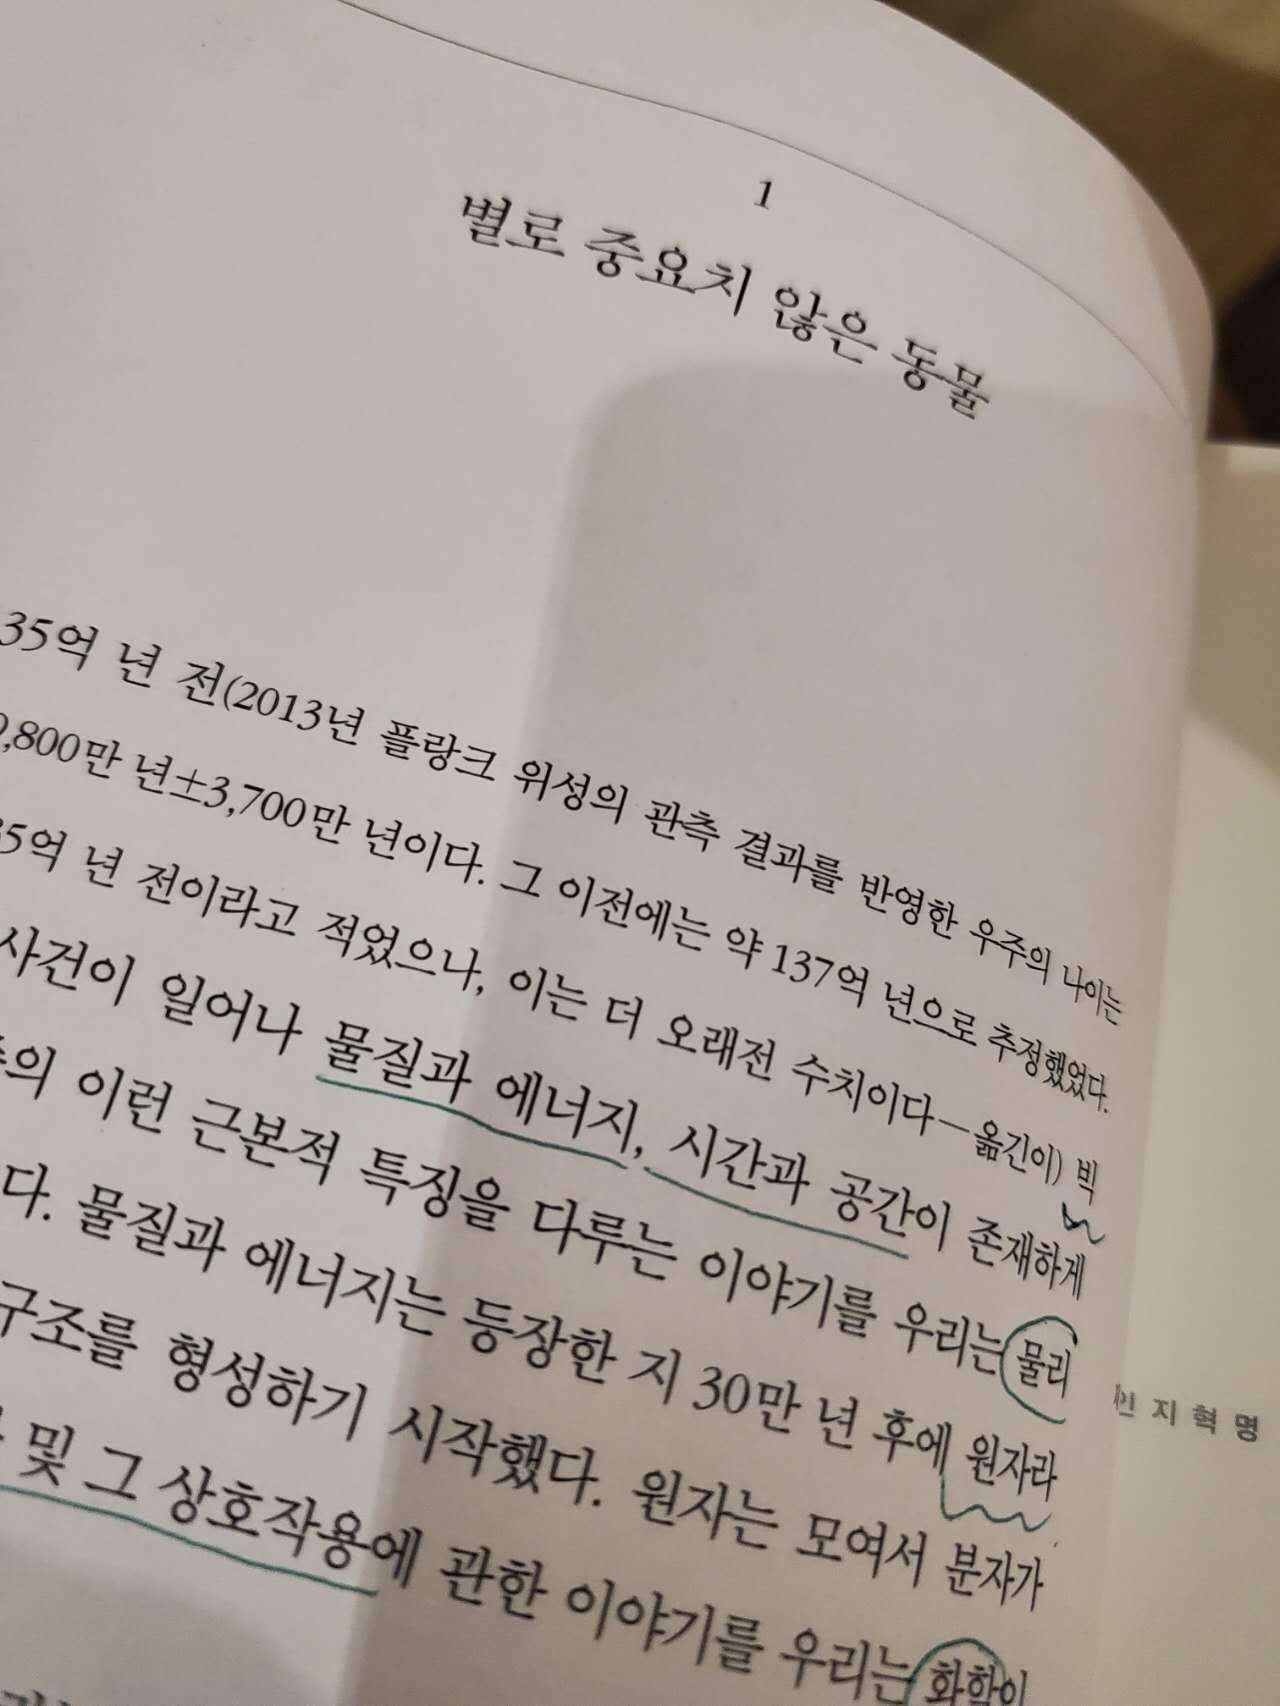 1
별로 중요치 않은 동물
35억 년 전(2013년 플랑크 위성의 관측 결과를 반영한 우주의 나이는
,800만 년±3,700만 년이다. 그 이전에는 약 137억 년으로 추정했었다.
35억 년 전이라고 적었으나, 이는 더 오래전 수치이다—옮긴이) 빅
사건이 일어나 물질과 에너지, 시간과 공간이 존재하게
의 이런 근본적 특징을 다루는 이야기를 우리는 물리
다. 물질과 에너지는 등장한 지 30만 년 후에 원자라
구조를 형성하기 시작했다. 원자는 모여서 분자가
및 그 상호작용에 관한 이야기를 우리는 화학이
인지혁명